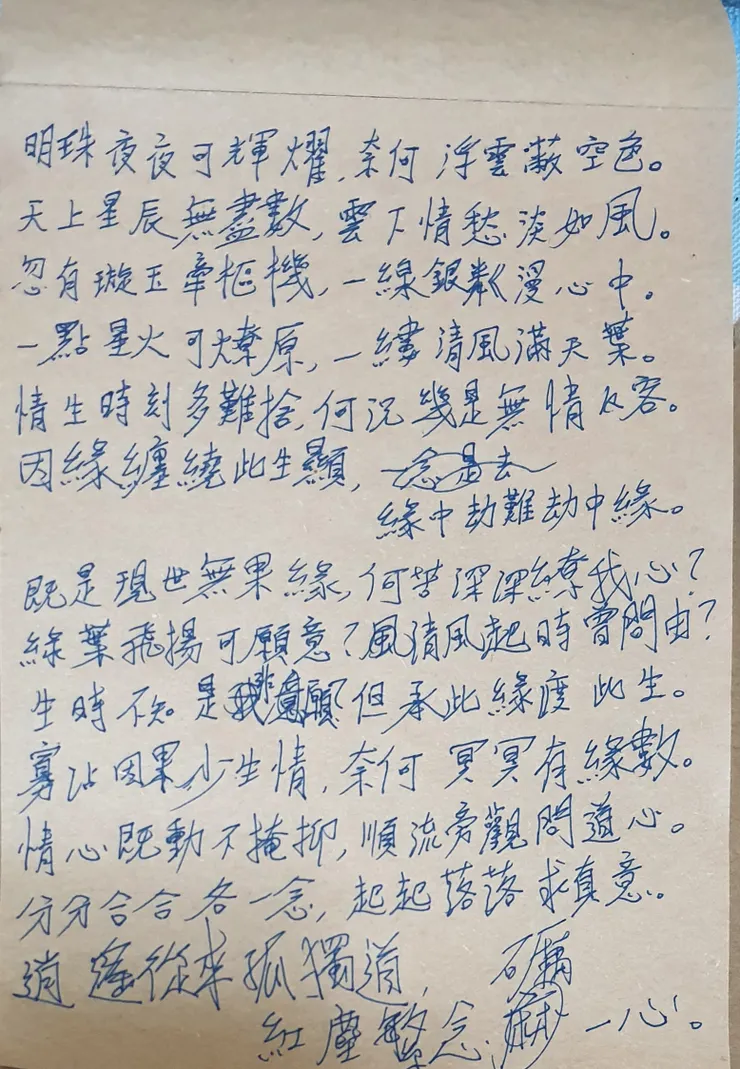 明珠夜夜可輝耀,奈何浮雲蔽空色。
天上星辰無盡數,雲下情愁淡如風。
忽有璇玉牽樞機,一線銀粼漫心中。
一點星火可燎原,一縷清風滿天葉。
情生時刻多難捨,何況幾是無情客。
因緣纏繞此生顯,一念是去
緣中劫難劫中緣。
既是現世無果緣,何苦深深繚我心?
綠葉飛揚可願意?風清風起時曾問由?
生時不知是非我意願?但承此緣度此生。
寡沾因果少生情,奈何冥冥有緣數。
情心既動不掩抑,順流旁觀問道心。
分分合合各一念,起起落落求真意。
逍遙從來孤獨道,礪
紅塵塹念一心。